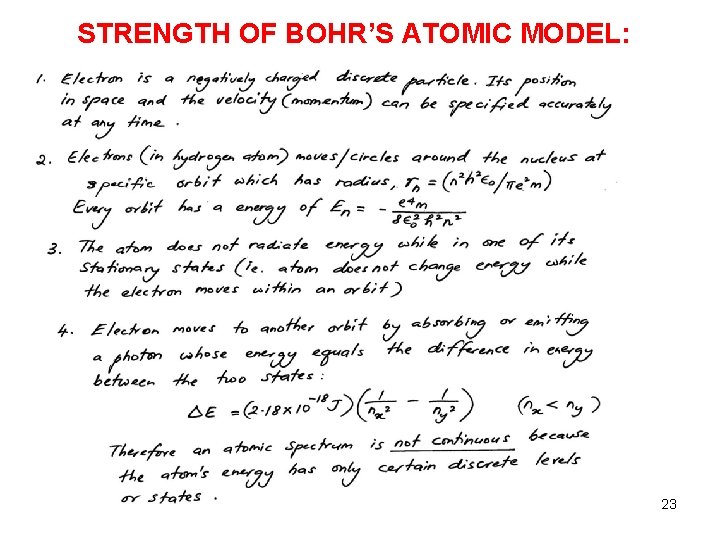 STRENGTH OF BOHR’S ATOMIC MODEL:
1. Electron is a negatively charged discrete particle. Its position
in space and the velocity (momentum) can be specified accurately
at any time.
2. Electrons (in hydrogen atom) moves/circles around the nucleus at
specific orbit which has radius, rₙ = (n²h²ε₀/πe²m)
Every orbit has a energy of Eₙ = - e⁴m / 8ε₀² h² n²
3. The atom does not radiate energy while in one of its
stationary states (ie. atom does not change energy while
the electron moves within an orbit)
4. Electron moves to another orbit by absorbing or emitting
a photon whose energy equals the difference in energy
between the two states:
ΔE = (2.18×10⁻¹⁸ J) (1/nₓ² - 1/nᵧ²) (nₓ < nᵧ)
Therefore an atomic spectrum is not continuous because
the atom's energy has only certain discrete levels
or states.
23